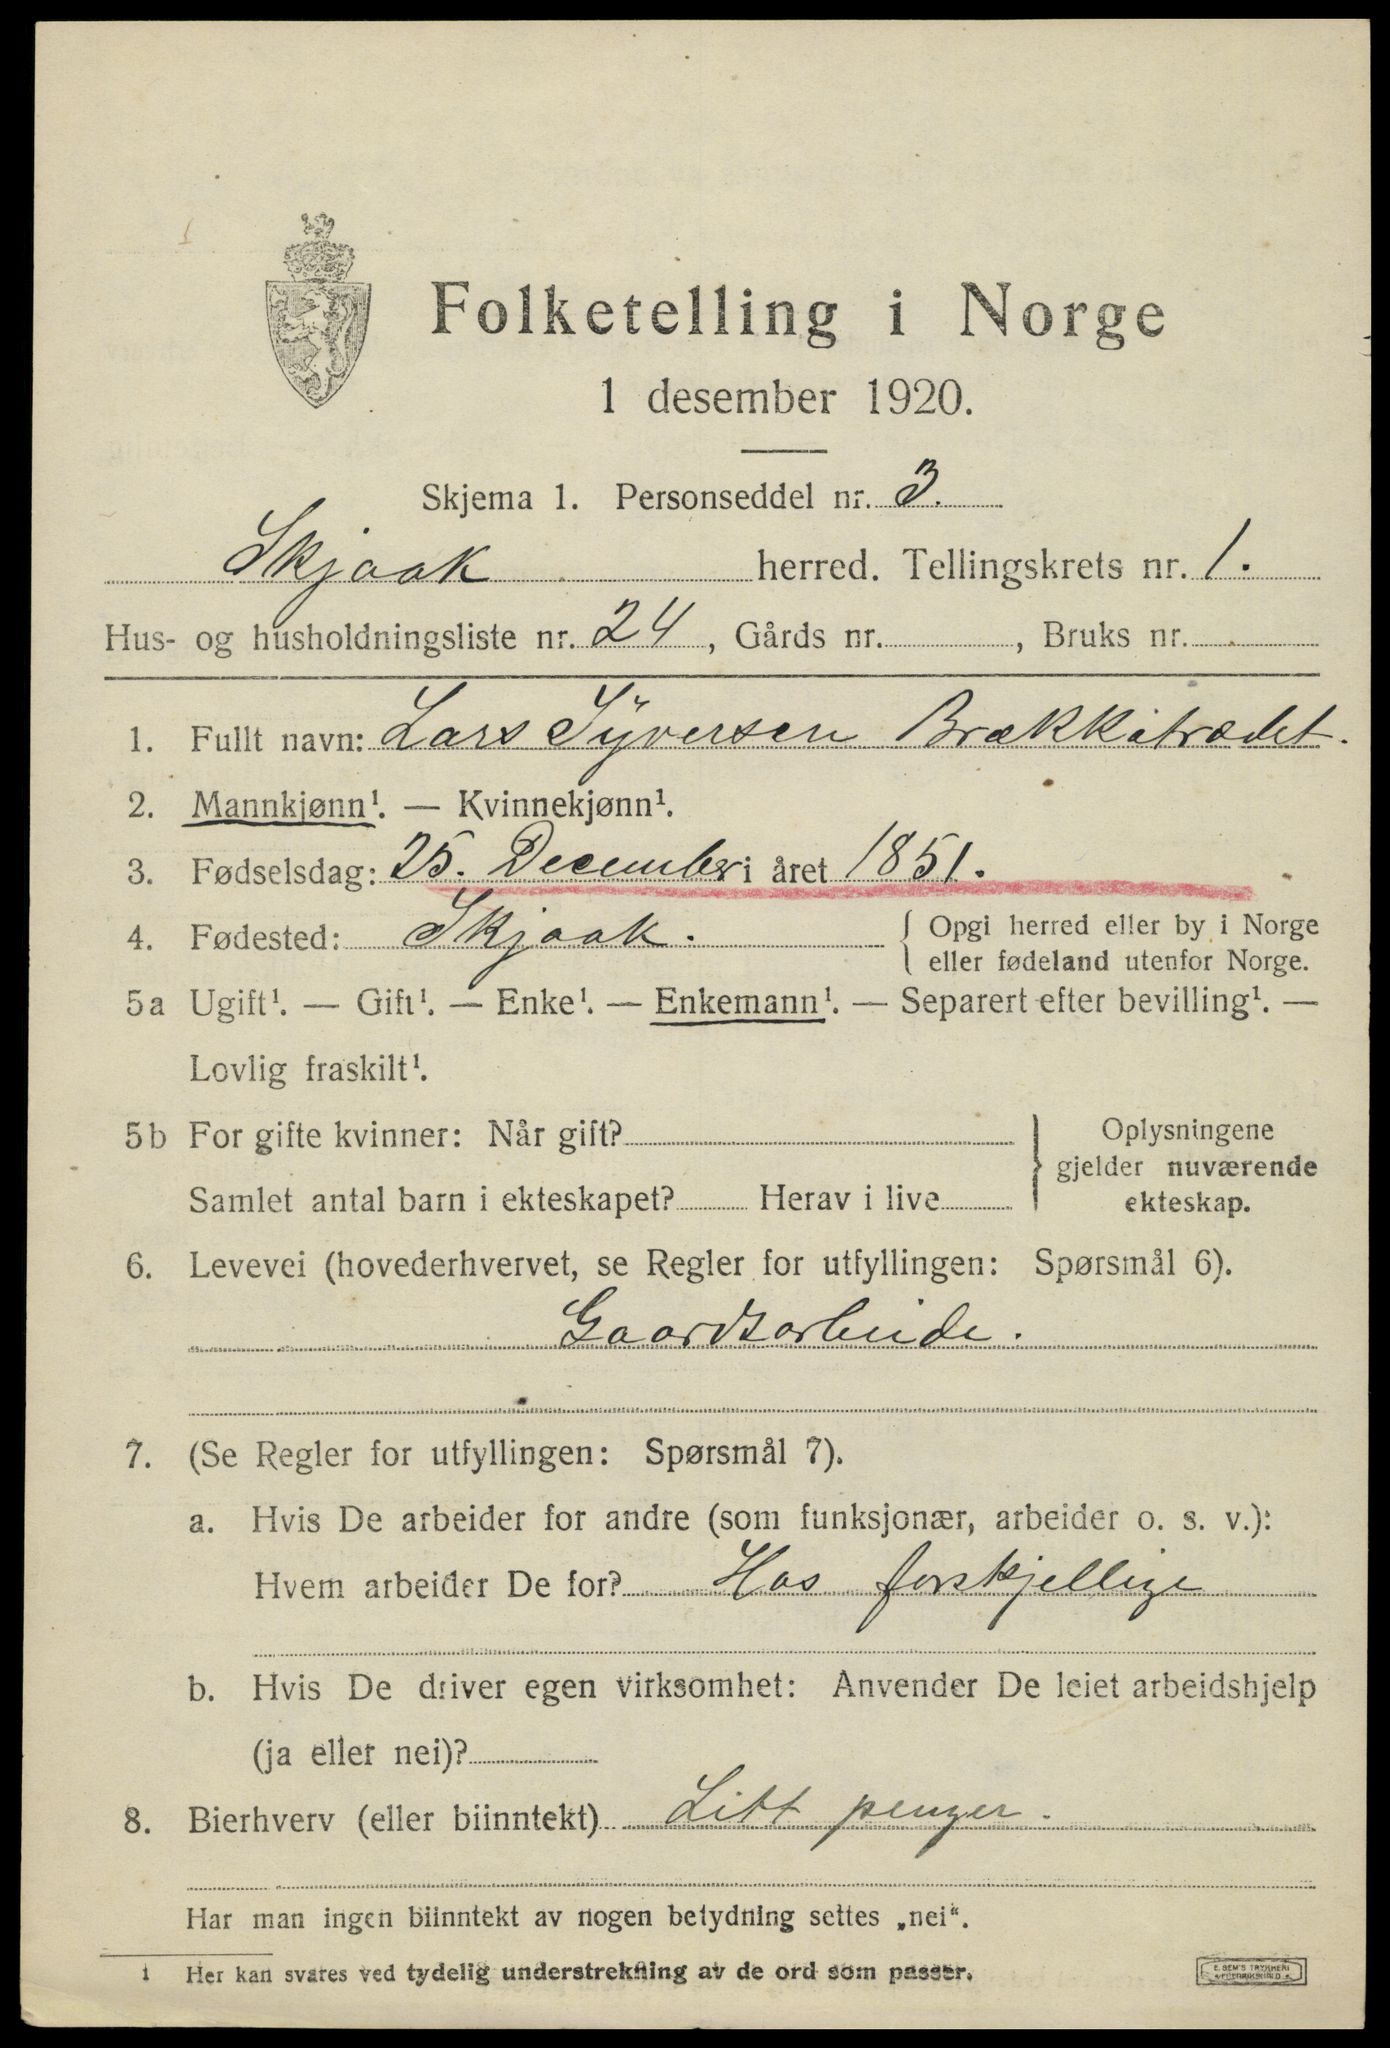 Folketelling i Norge
1 desember 1920.
Skjema 1. Personseddel nr. 3.
Skjaak herred. Tellingskrets nr. 1.
Hus- og husholdningsliste nr. 24, Gårds nr. , Bruks nr.
1. Fullt navn: Lars Syversen Brækkitrædet.
2. Mannkjønn¹. — Kvinnekjønn¹.
3. Fødselsdag: 25. December i året 1851.
4. Fødested: Skjaak. { Opgi herred eller by i Norge
eller fødeland utenfor Norge.
5a Ugift¹. — Gift¹. — Enke¹. — Enkemann¹. — Separert efter bevilling¹. —
Lovlig fraskilt¹.
5b For gifte kvinner: Når gift? } Oplysningene
gjelder nuværende
Samlet antal barn i ekteskapet? Herav i live ekteskap.
6. Levevei (hovederhvervet, se Regler for utfyllingen: Spørsmål 6).
Gaardsarbeide.
7. (Se Regler for utfyllingen: Spørsmål 7).
a. Hvis De arbeider for andre (som funksjonær, arbeider o. s. v.):
Hvem arbeider De for? Hos forskjellige
b. Hvis De driver egen virksomhet: Anvender De leiet arbeidshjelp
(ja eller nei)?
8. Bierhverv (eller biinntekt) Litt penger.
Har man ingen biinntekt av nogen betydning settes „nei“.
1 Her kan svares ved tydelig understrekning av de ord som passer.
E. SEM'S TRYKKERI